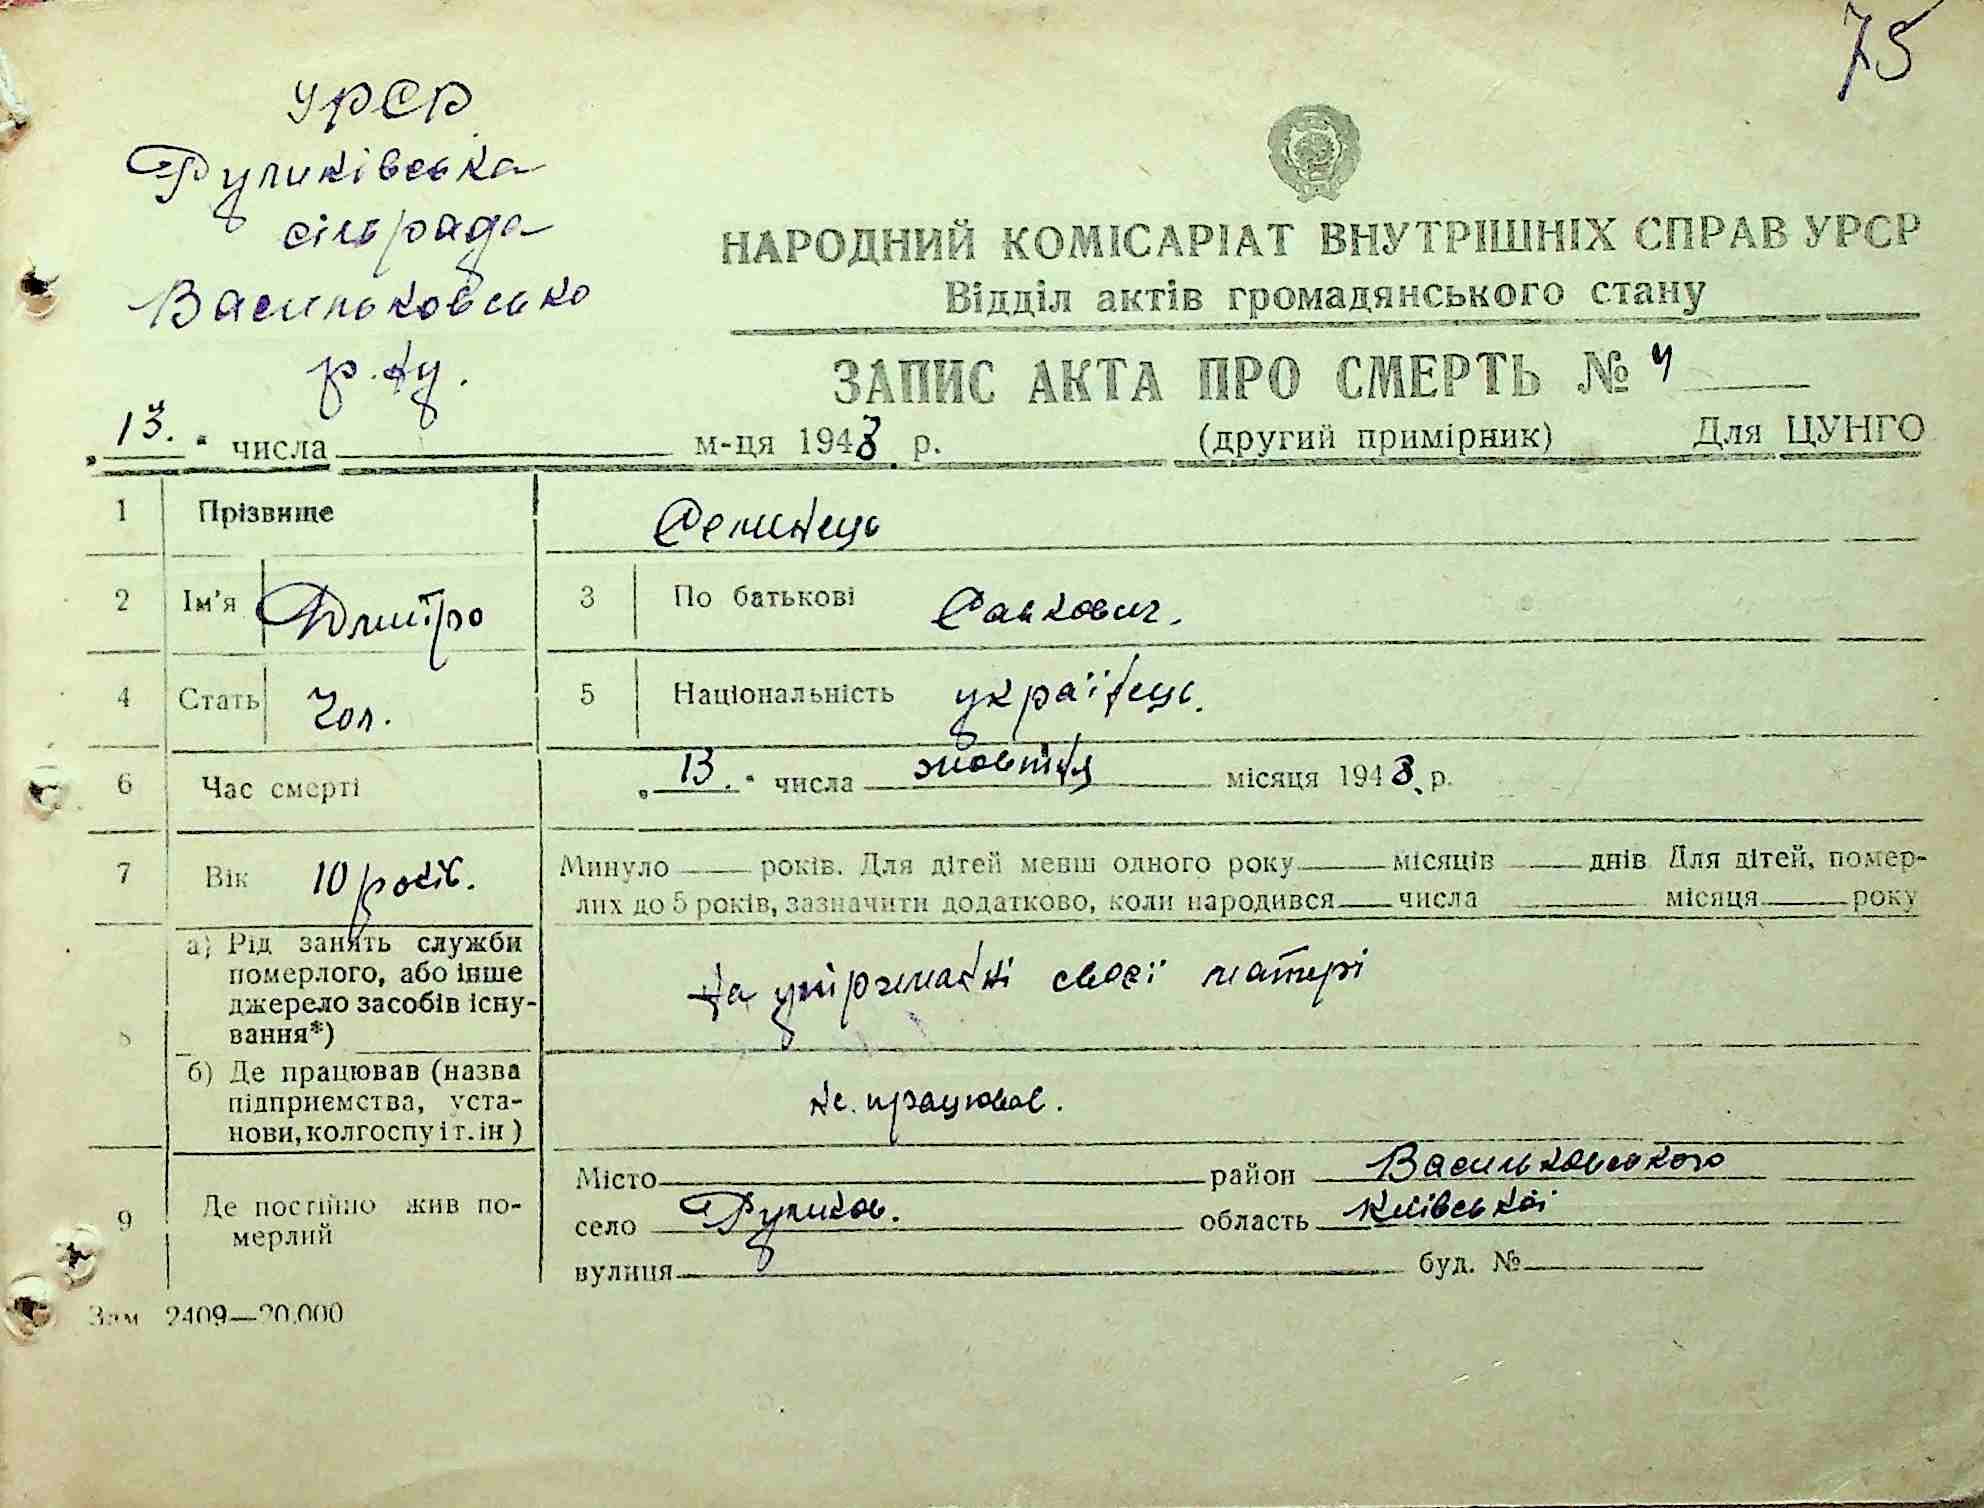 75
УРСР
сільрада
Васильковсько
р-ну.
НАРОДНИЙ КОМІСАРІАТ ВНУТРІШНІХ СПРАВ УРСР
Відділ актів громадянського стану
ЗАПИС АКТА ПРО СМЕРТЬ № 4
„13." числа м-ця 1943 р. (другий примірник) Для ЦУНГО
1 Прізвище
2 Ім'я Дмитро 3 По батькові Савкович.
4 Стать Чол. 5 Національність українець.
6 Час смерті „13." числа жовтня місяця 1943 р.
7 Вік 10 років. Минуло років. Для дітей менш одного року місяців днів Для дітей, помер-
лих до 5 років, зазначити додатково, коли народився числа місяця року
8 а) Рід занять служби
померлого, або інше
джерело засобів існу-
вання*)
на утриманні своєї матері
б) Де працював (назва
підприємства, уста-
нови, колгоспу і т. ін)
не працював.
9 Де постійно жив по-
мерлий
Місто район Васильковського
село область Київської
вулиця буд. №
Зам 2409—20.000